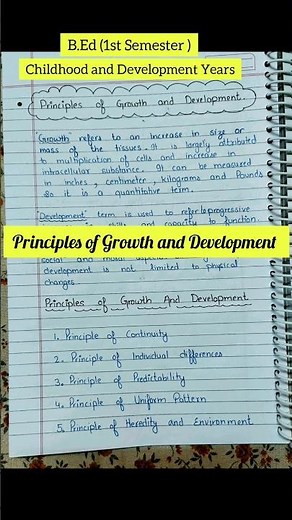 B.Ed (1st Semester )
Childhood and Development Years
Principles of Growth and Development.
'Growth' refers to an increase in size or
mass of the tissues. It is largely attributed
to multiplication of cells and increase in
intracellular substance. It can be measured
in inches, centimeter, kilograms and Pounds
So it is a quantitative term.
'Development' term is used to refer to progressive
skills and capacity to function.
Principles of Growth and Development
social and moral
development is not limited to physical
changes.
Principles of Growth And Development
1. Principle of Continuity
2. Principle of Individual differences
3. Principle of Predictability
4. Principle of Uniform Pattern
5. Principle of Heredity and Environment